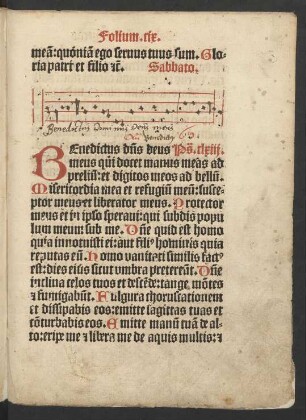 Folium. clx.
meā: quoniā ego seruus tuus sum. Glo-
ria patri et filio ⁊č. Sabbato.
Benedictus Dominus Deus meus
BEnedictus dn̄s deus Ps. cxliij.
meus qui docet manus meas ad
preliū: et digitos meos ad bellū.
Misericordia mea et refugiū meū: susce-
ptor meus et liberator meus. Protector
meus et in ipso speraui: qui subdis popu
lum meum sub me. Dn̄e quid est homo
quia innotuisti ei: aut filiꝰ hominis quia
reputas eū. Homo vanitati similis factꝰ
est: dies eius sicut umbra pretereūt. Dn̄e
inclina celos tuos et descēde: tange mōtes
⁊ fumigabūt. Fulgura choruscationem
et dissipabis eos: emitte sagittas tuas et
cōturbabis eos. Emitte manū tuā de al-
to: eripe me ⁊ libera me de aquis multis: ⁊